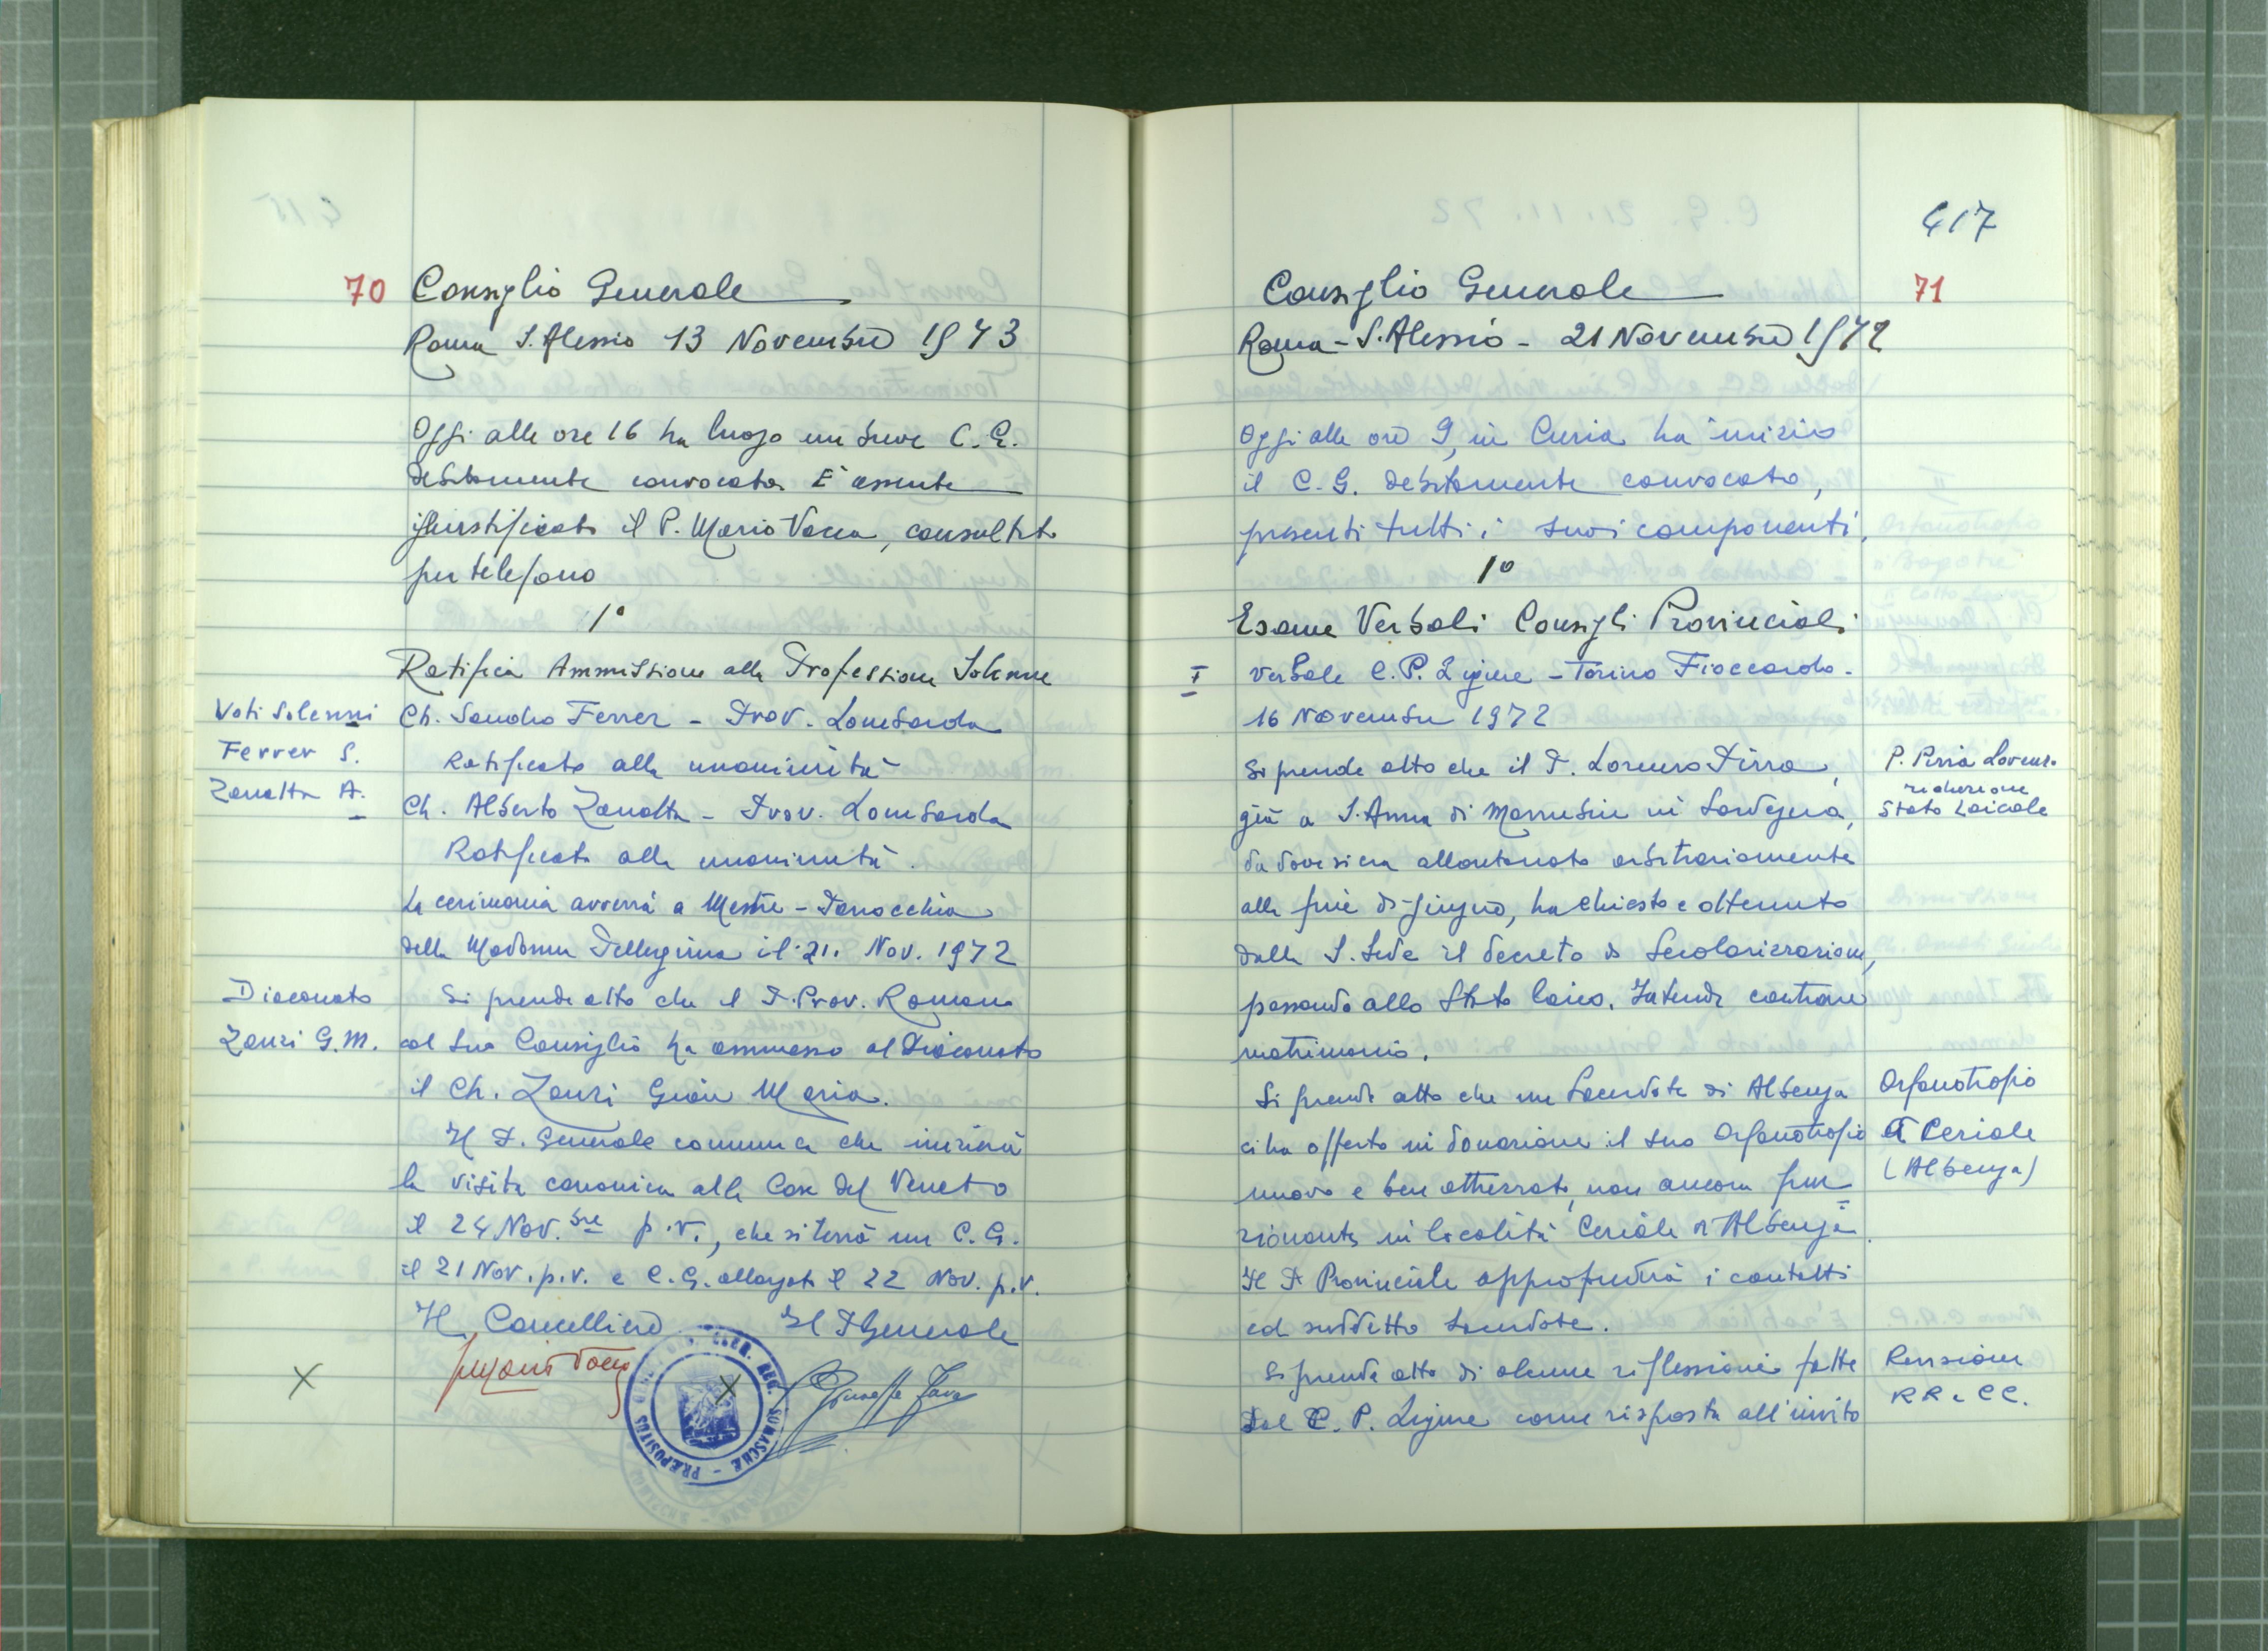 70 Consiglio Generale
Roma S. Alessio 13 Novembre 1973
Oggi alle ore 16 ha luogo un breve C. G.
debitamente convocato. È assente
giustificato il P. Mario Vacca, consultato
per telefono
1°
Ratifica Ammissione alla Professione Solenne
Voti Solenni
Ferrer S.
Zanatta A.
Ch. Sandro Ferrer - Prov. Lombarda
Ratificata alla unanimità
Ch. Alberto Zanatta - Prov. Lombarda
Ratificata alla unanimità.
La cerimonia avverrà a Mestre - Parrocchia
della Madonna Pellegrina il 21. Nov. 1972
Diaconato
Zanzi G.M.
Si prende atto che il P. Prov. Romano
col suo Consiglio ha ammesso al Diaconato
il Ch. Zanzi Gian Maria.
Il P. Generale comunica che inizierà
la visita canonica alle Case del Veneto
il 24 Nov.bre p.v., che si terrà un C. G.
il 21 Nov. p.v. e C.G. allargato il 22 Nov. p.v.
Il Cancelliere Il P. Generale
417
Consiglio Generale 71
Roma - S. Alessio - 21 Novembre 1972
Oggi alle ore 9, in Curia ha inizio
il C. G. debitamente convocato,
presenti tutti i suoi componenti.
1°
Esame Verbali Consigli Provinciali
I Verbale C. P. Ligure - Torino Fioccardo -
16 Novembre 1972
Si prende atto che il P. Lorenzo Pirra,
già a S. Anna di Marrubiu in Sardegna,
da dove si era allontanato arbitrariamente
alla fine di giugno, ha chiesto e ottenuto
dalla S. Sede il decreto di Secolarizzazione,
passando allo Stato laico. Intende contrarre
matrimonio.
P. Pirra Lorenzo
riduzione
Stato Laicale
Si prende atto che un Sacerdote di Albenga
ci ha offerto in donazione il suo Orfanotrofio
nuovo e ben attrezzato, non ancora fun=
zionante, in località Ceriale di Albenga.
Il P. Provinciale approfondirà i contatti
col suddetto Sacerdote.
Orfanotrofio
a Ceriale
(Albenga)
Si prende atto di alcune riflessioni fatte
dal C. P. Ligure come risposta all'invito
Revisione
RR e CC.